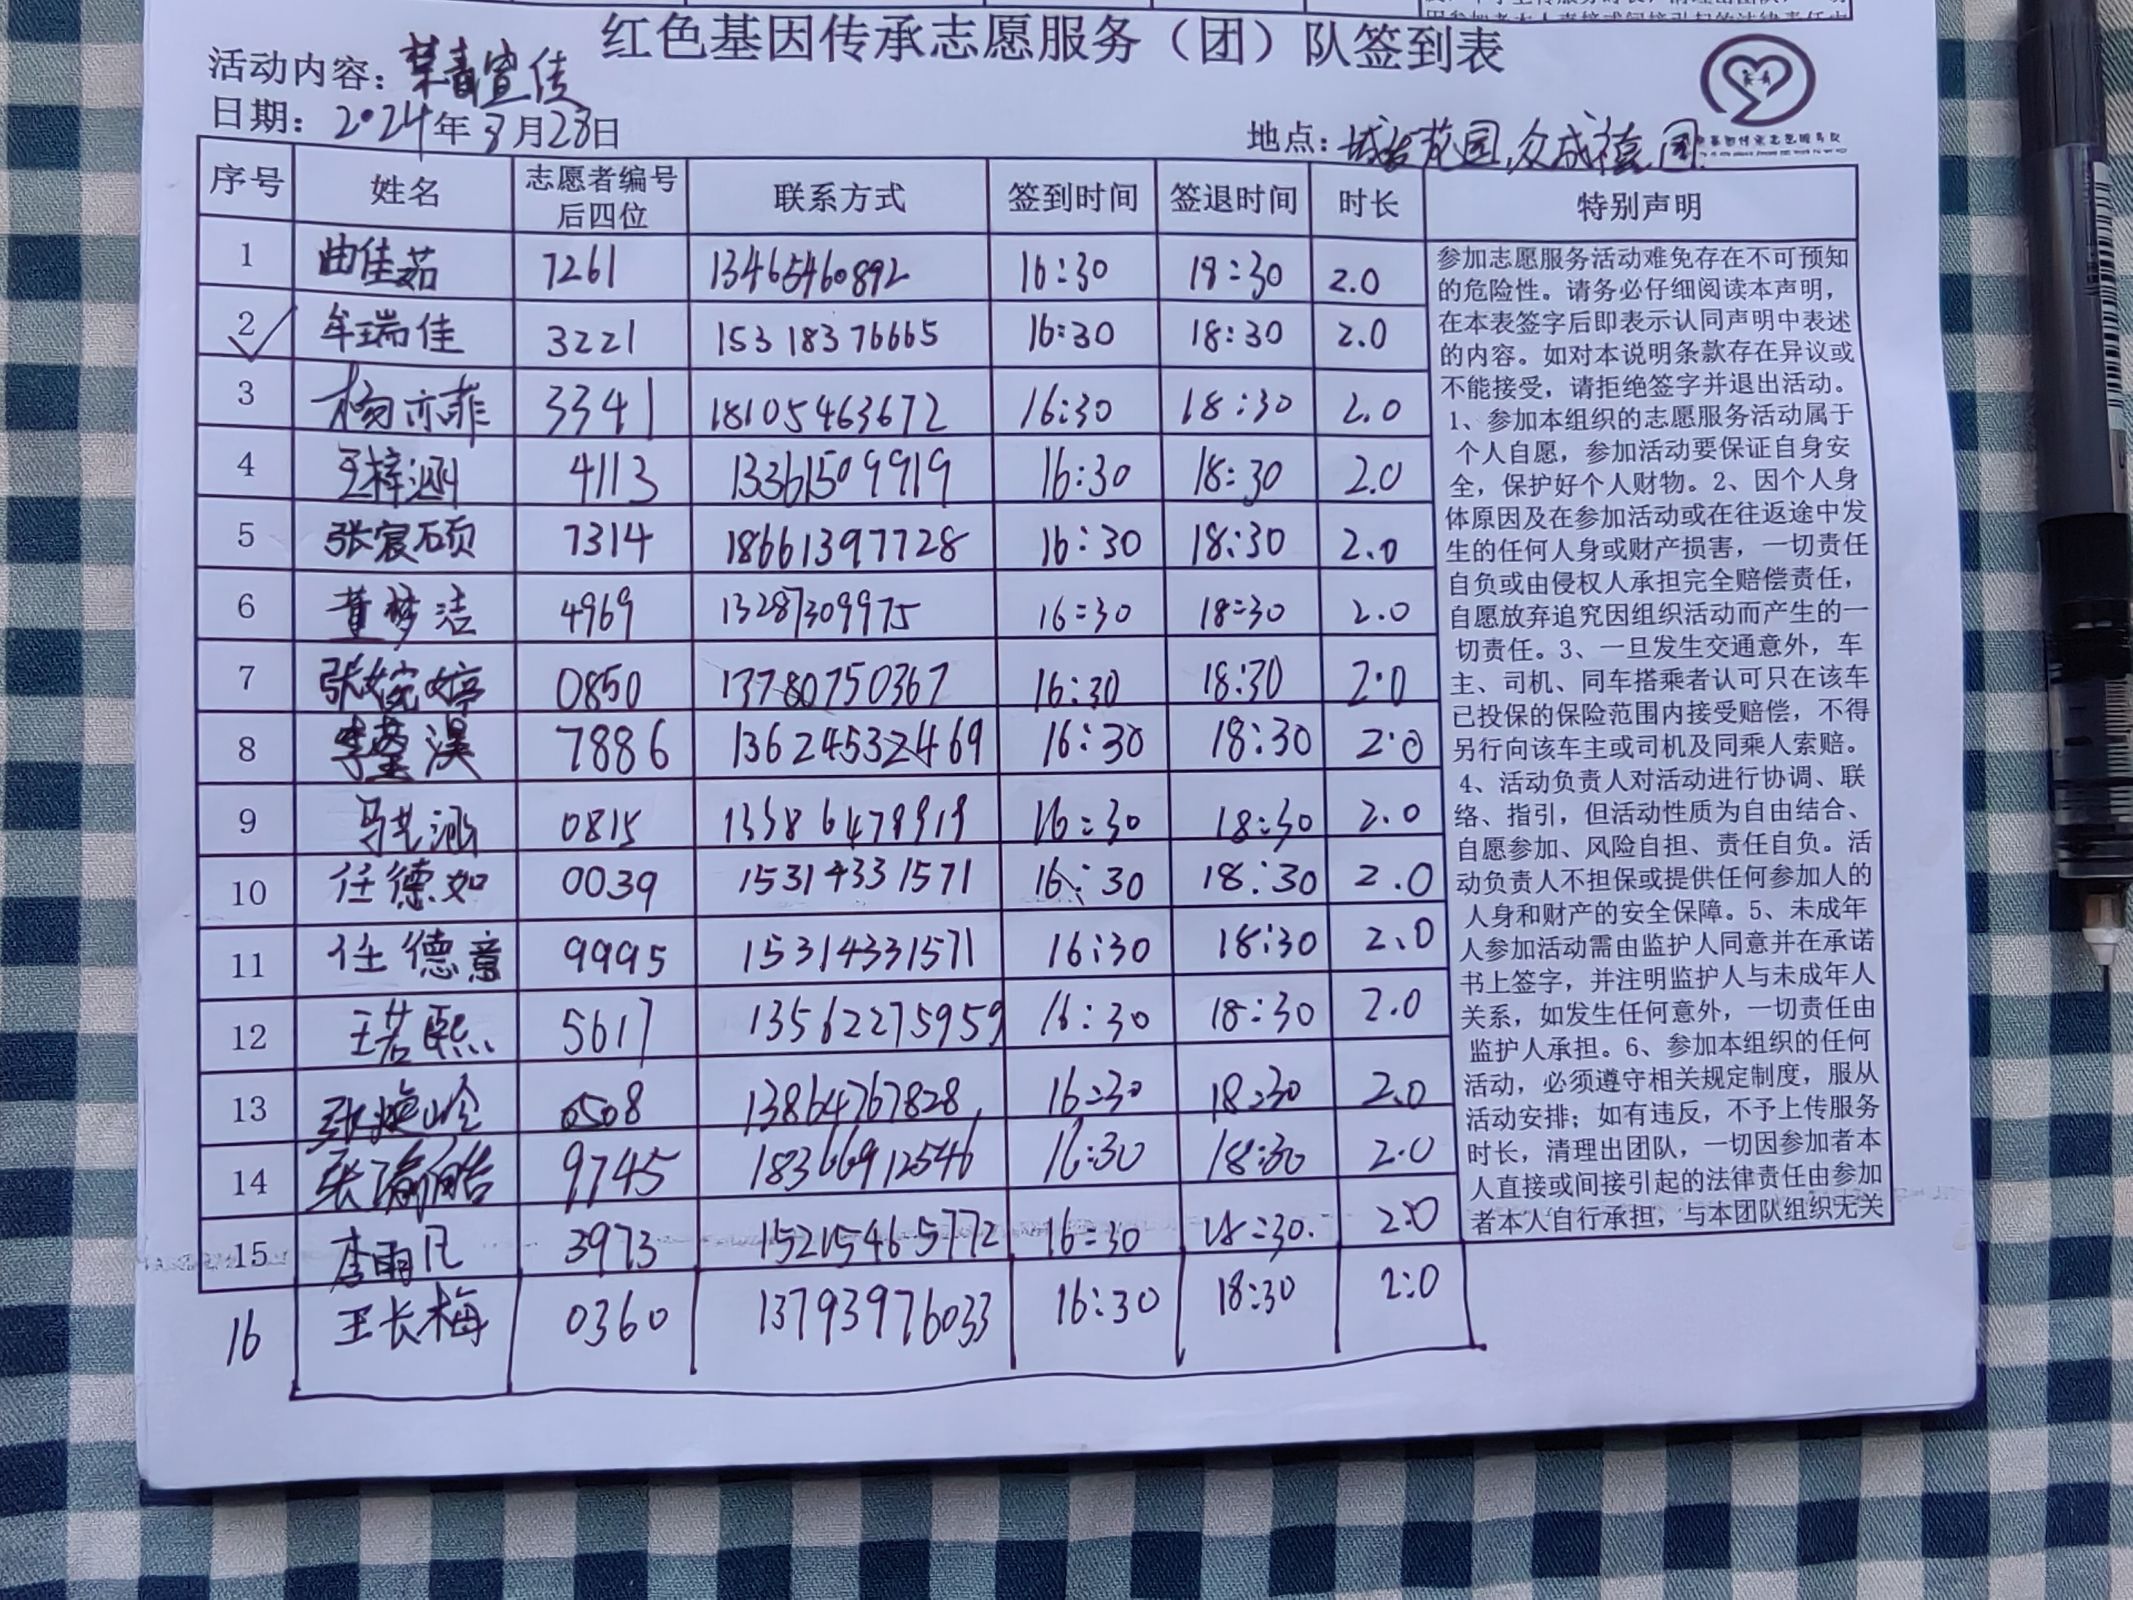 红色基因传承志愿服务（团）队签到表
活动内容：禁毒宣传
日期：2024年3月23日
地点：花园,众成 园
序号 姓名 志愿者编号后四位 联系方式 签到时间 签退时间 时长 特别声明
1 曲佳茹 7261 13465460892 16:30 18:30 2.0
2 牟瑞佳 3221 15318376665 16:30 18:30 2.0
3 杨亦菲 3341 18105463672 16:30 18:30 2.0
4 王梓涵 4113 13361509919 16:30 18:30 2.0
5 张宸硕 7314 18661397728 16:30 18:30 2.0
6 董梦洁 4969 13287309975 16:30 18:30 2.0
7 张婉婷 0850 13780750367 16:30 18:30 2.0
8 李 淏 7886 13624532469 16:30 18:30 2.0
9 马艺涵 0815 16:30 18:30 2.0
10 任德如 0039 15314331571 16:30 18:30 2.0
11 任德意 9995 15314331571 16:30 18:30 2.0
12 王若熙 5617 13562275959 16:30 18:30 2.0
13 张焕岭 0508 13864767828 16:30 18:30 2.0
14 张 皓 9745 18366912546 16:30 18:30 2.0
15 李雨凡 3973 15215465772 16:30 18:30. 2.0
16 王长梅 0360 13793976033 16:30 18:30 2:0
参加志愿服务活动难免存在不可预知
的危险性。请务必仔细阅读本声明，
在本表签字后即表示认同声明中表述
的内容。如对本说明条款存在异议或
不能接受，请拒绝签字并退出活动。
1、参加本组织的志愿服务活动属于
个人自愿，参加活动要保证自身安
全，保护好个人财物。2、因个人身
体原因及在参加活动或在往返途中发
生的任何人身或财产损害，一切责任
自负或由侵权人承担完全赔偿责任，
自愿放弃追究因组织活动而产生的一
切责任。3、一旦发生交通意外，车
主、司机、同车搭乘者认可只在该车
已投保的保险范围内接受赔偿，不得
另行向该车主或司机及同乘人索赔。
4、活动负责人对活动进行协调、联
络、指引，但活动性质为自由结合、
自愿参加、风险自担、责任自负。活
动负责人不担保或提供任何参加人的
人身和财产的安全保障。5、未成年
人参加活动需由监护人同意并在承诺
书上签字，并注明监护人与未成年人
关系，如发生任何意外，一切责任由
监护人承担。6、参加本组织的任何
活动，必须遵守相关规定制度，服从
活动安排；如有违反，不予上传服务
时长，清理出团队，一切因参加者本
人直接或间接引起的法律责任由参加
者本人自行承担，与本团队组织无关